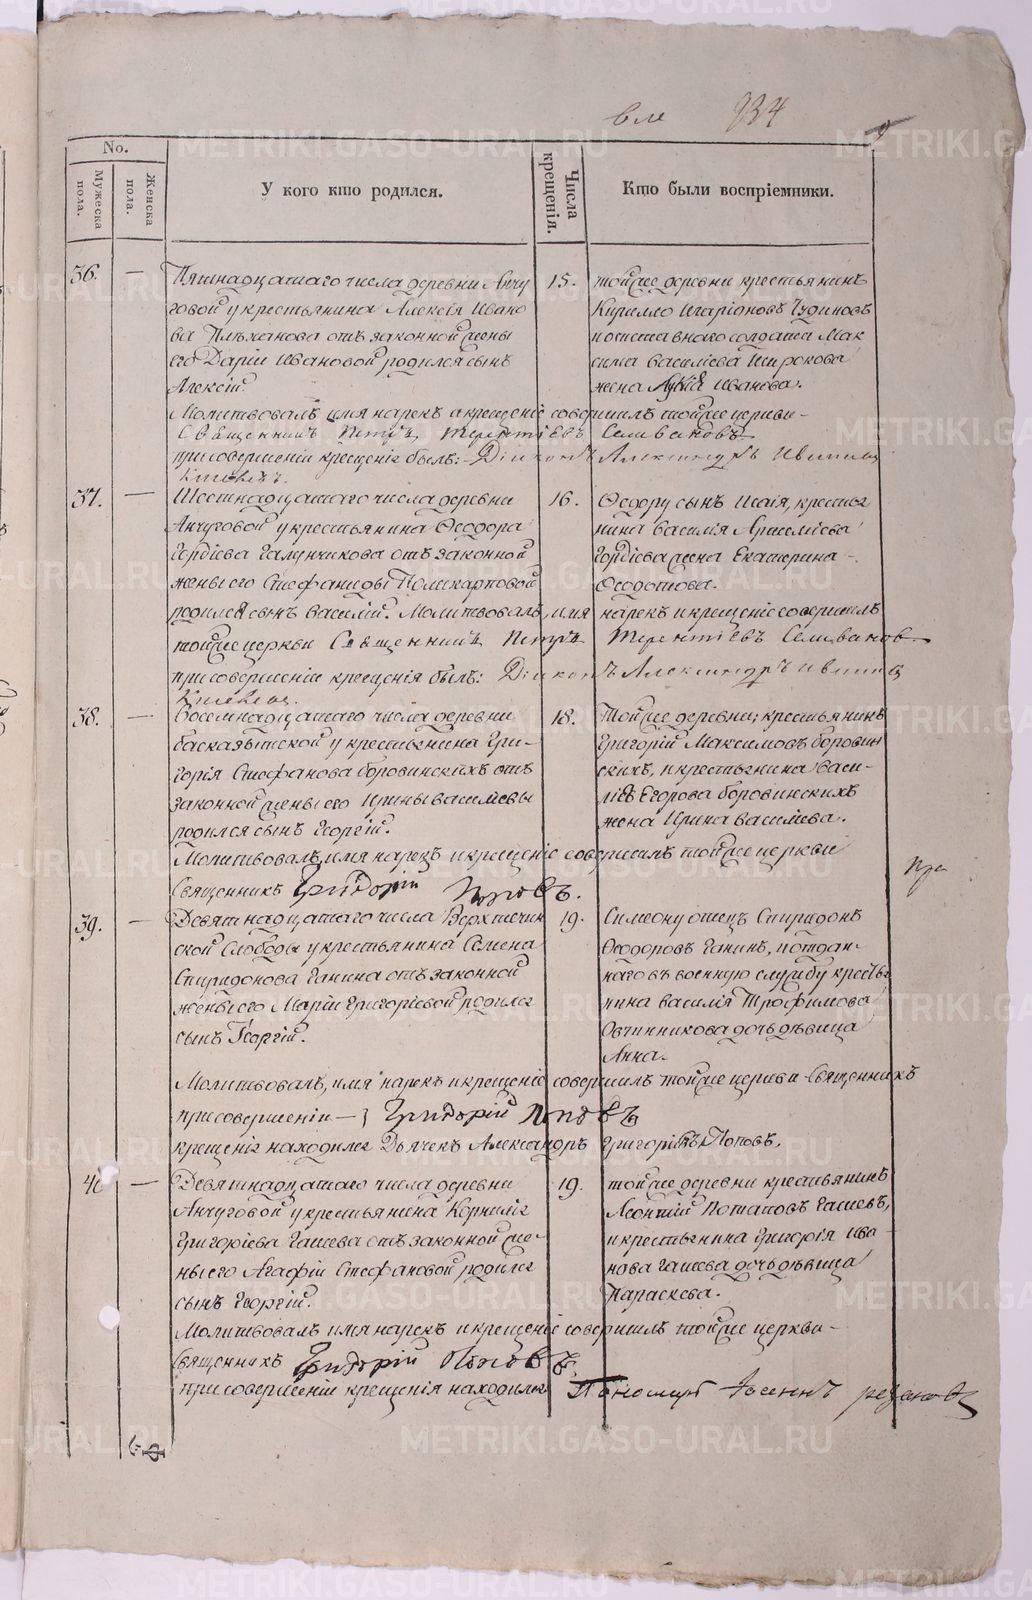 вле 934
No.
Мужеска пола.
Женска пола.
У кого кто родился.
Числа крещенія.
Кто были воспріемники.
36. — Пятнадцатаго числа деревни Анчу
говой у крестьянина Алексія Ивано
ва Плѣханова отъ законной жены
его Даріи Ивановой родился сынъ
Алексій.
15. тойже деревни крестьянинъ
Кирилло Иларіоновъ Чудиновъ
и отставнаго солдата Мак
сима Васильева Широкова
жена Иванова.
Молитвовалъ имя нарекъ и крещеніе совершилъ тойже церкви
Священникъ Петръ Терентіевъ Селивановъ
при совершеніи крещенія былъ: Діаконъ Александръ
37. — Шестнадцатаго числа деревни
Анчуговой у крестьянина Ѳеодора
Гордіева Галенчикова отъ законной
жены его Стефаниды Поликарповой
родился сынъ Василій. Молитвовалъ, имя
16. Ѳедору сынъ Исаія, крестья
нина Василія Артеміева
Гордіева жена Екатерина
Ѳеодотова.
нарекъ и крещеніе совершилъ
тойже церкви Священникъ Петръ Терентіевъ Селиванов
при совершеніи крещенія былъ: Діаконъ Александръ
38. — Восемнадцатаго числа деревни
Басказыкской у крестьянина Гри-
горія Стефанова Боровинскихъ отъ
законной жены его Ирины Васильевы
родился сынъ Георгій.
18. Тойже деревни; крестьянинъ
Григорій Максимовъ Боровин
скихъ, и крестьянина Васи-
лія Егорова Боровинскихъ
жена Ирина Васильева.
Молитвовалъ, имя нарекъ и крещеніе совершилъ тойже церкви
Священникъ Григорій Поповъ.
39. — Девятнадцатаго числа Верхтечин
ской Слободы у крестьянина Семена
Спиридонова Ганина отъ законной
жены его Маріи Григоріевой родился
сынъ Георгій.
19. Симеону отецъ Спиридонъ
Ѳеодоровъ Ганинъ, и отдан-
наго въ военную службу кресть
янина Василія Трофимова
Овчинникова дочь дѣвица
Анна.
Молитвовалъ, имя нарекъ и крещеніе совершилъ тойже церкви Священникъ
при совершеніи — Григорій Поповъ
крещенія находился Дьячекъ Александръ Григоріевъ Поповъ.
40 — Девятнадцатаго числа деревни
Анчуговой у крестьянина Корнилія
Григоріева Гашева отъ законной же-
ны его Агафіи Стефановой родился
сынъ Георгій.
19. тойже деревни крестьянинъ
Леонтій Потаповъ Гашевъ,
и крестьянина Григорія Ива
нова Гашева дочь дѣвица
Параскева.
Молитвовалъ имя нарекъ и крещеніе совершилъ тойже церкви
Священникъ Григорій Поповъ.
при совершеніи крещенія находился Пономарь
METRIKI.GASO-URAL.RU